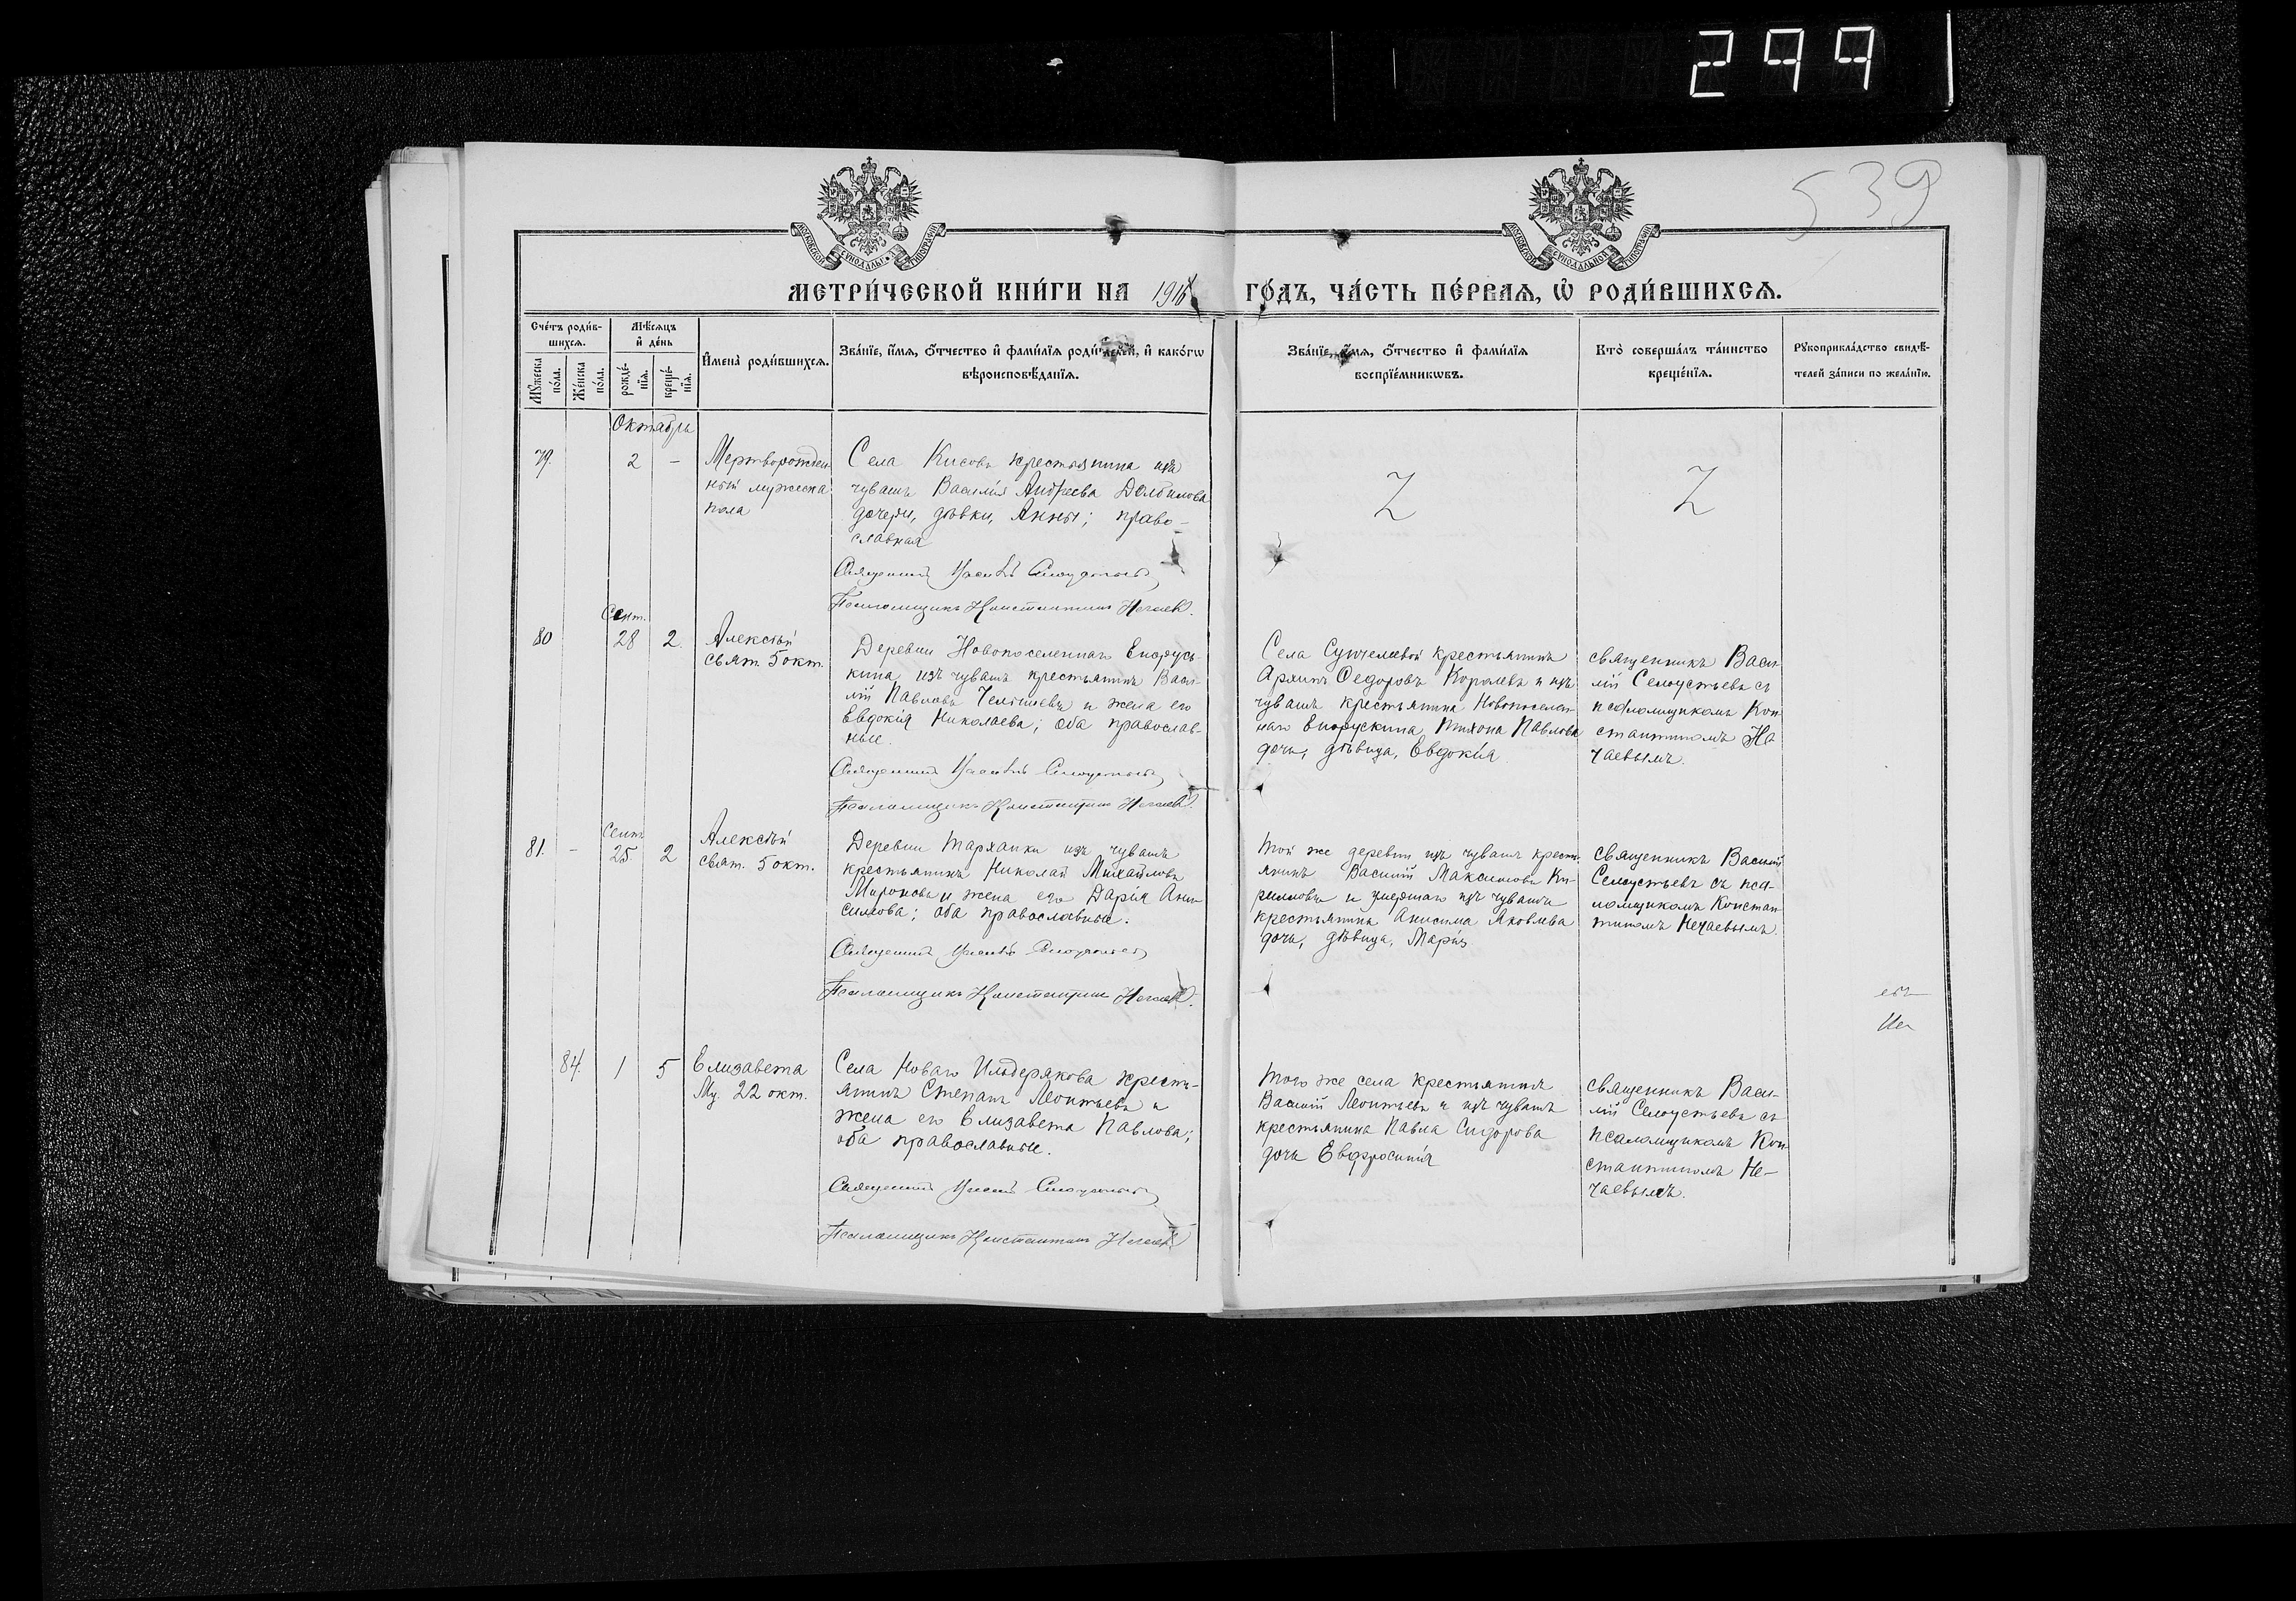 299
539
МОСКОВСКОЙ СѴНОДАЛЬНОЙ ТИПОГРАФІИ
МОСКОВСКОЙ СѴНОДАЛЬНОЙ ТИПОГРАФІИ
МЕТРИ́ЧЕСКОЙ КНИ́ГИ НА 1916 ГО́ДЪ, ЧА́СТЬ ПЕ́РВАѦ, Ѡ҆ РОДИ́ВШИХСѦ.
Сче́тъ роди́в-
шихсѧ.
Мѣ́сѧцъ
и҆ де́нь
Мꙋ́жеска
по́ла.
Же́нска
по́ла.
рожде́-
нїѧ.
креще́-
нїѧ.
И҆мена̀ роди́вшихсѧ.
Зва́нїе, и҆́мѧ, ѻ҆́тчество и҆ фами́лїѧ роди́телей, и҆ како́гѡ
вѣроисповѣ́данїѧ.
Зва́нїе, и҆́мѧ, ѻ҆́тчество и҆ фами́лїѧ
воспрїе́мникѡвъ.
Кто̀ соверша́лъ та́инство
креще́нїѧ.
Рꙋкоприкла́дство свидѣ́-
телей за́писи по жела́нїю.
Октябрь
79.
2
-
Мертворожден-
ный мужеска
пола
Села Кисовъ крестьянина изъ
чувашъ Василія Андреева Долбилова
дочери, дѣвки, Анны; право-
славная
Священникъ
Псаломщикъ Константинъ Нечаевъ.
Сент.
80
28
2.
Алексѣй
свят. 5 окт.
Деревни Новопоселеннаго
изъ чувашъ крестьянинъ Васи-
лій Павловъ и жена его
Евдокія Николаева; оба православ-
ные.
Священникъ
Псаломщикъ Константинъ Нечаевъ.
Села крестьянинъ
Архипъ Ѳедоровъ Королевъ и изъ
чувашъ крестьянина Новопоселен-
наго Тихона Павлова
дочь, дѣвица, Евдокія
священникъ Васи-
лій Селоустьевъ съ
псаломщикомъ Кон-
стантиномъ Не-
чаевымъ.
Сент.
81.
-
25
2
Алексѣй
свят. 5 окт.
Деревни Тарханки изъ чувашъ
крестьянинъ Николай Михайловъ
Мироновъ и жена его Дарія Ани-
симова; оба православные.
Священникъ
Псаломщикъ Константинъ Нечаевъ.
Той же деревни изъ чувашъ кресть-
янинъ Василій Максимовъ Ки-
рилловъ и умершаго изъ чувашъ
крестьянина Анисима Яковлева
дочь, дѣвица, Марія
священникъ Василій
Селоустьевъ съ пса-
ломщикомъ Констан-
тиномъ Нечаевымъ.
84.
1
5
Елизавета
Му. 22 окт.
Села Новаго Ильдерякова кресть-
янинъ Степанъ Леонтьевъ и
жена его Елизавета Павлова;
оба православные.
Священникъ
Псаломщикъ Константинъ Нечаевъ
Того же села крестьянинъ
Василій Леонтьевъ и изъ чувашъ
крестьянина Павла Сидорова
дочь Евфросинія
священникъ Васи-
лій Селоустьевъ съ
псаломщикомъ Кон-
стантиномъ Не-
чаевымъ.